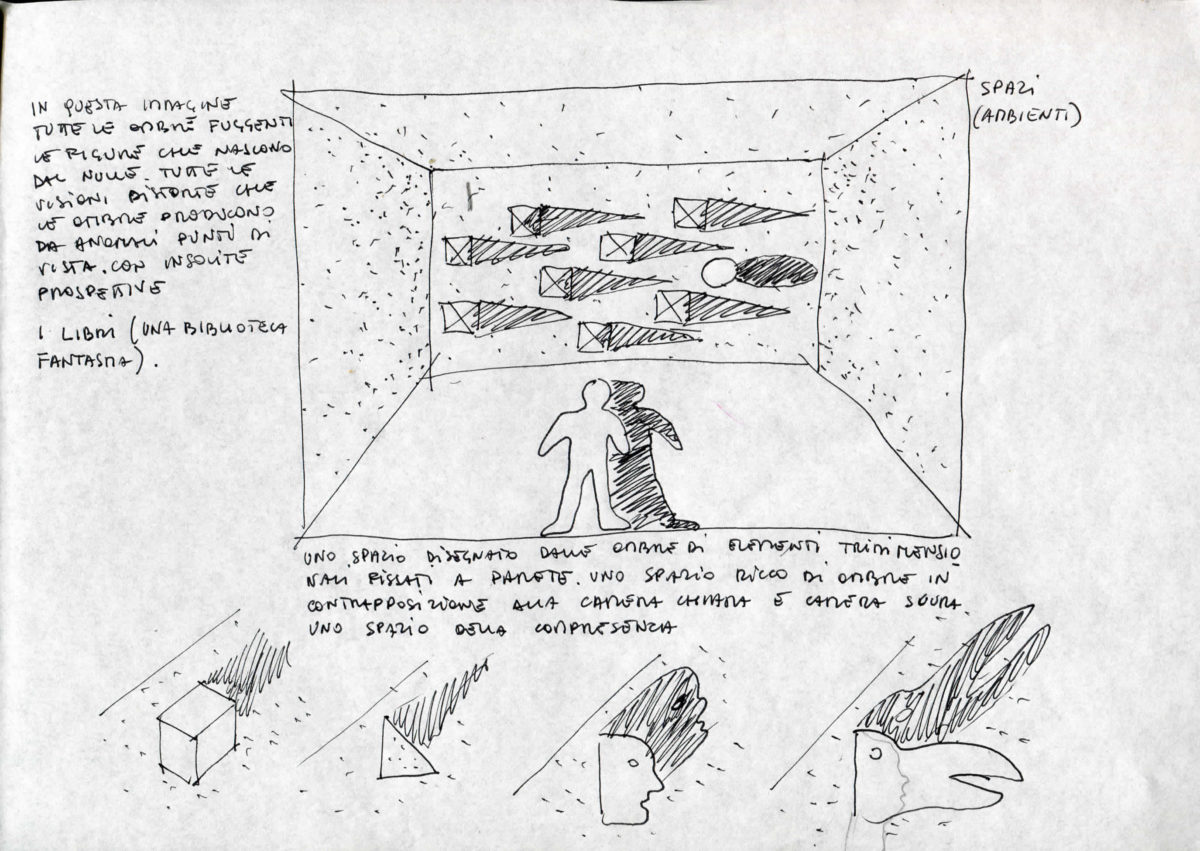 IN QUESTA IMMAGINE
TUTTE LE OMBRE FUGGENTI
LE FIGURE CHE NASCONO
DAL NULLE. TUTTE LE
VISIONI DISTORTE CHE
LE OMBRE PRODUCONO
DA ANOMALI PUNTI DI
VISTA. CON INSOLITE
PROSPETTIVE
I LIBRI (UNA BIBLIOTECA
FANTASMA).
SPAZI
(AMBIENTI)
UNO SPAZIO DISEGNATO DALLE OMBRE DI ELEMENTI TRIDIMENSIO
NALI FISSATI A PARETE. UNO SPAZIO RICCO DI OMBRE IN
CONTRAPPOSIZIONE ALLA CAMERA CHIARA E CAMERA SCURA.
UNO SPAZIO DELLA COMPRESENZA